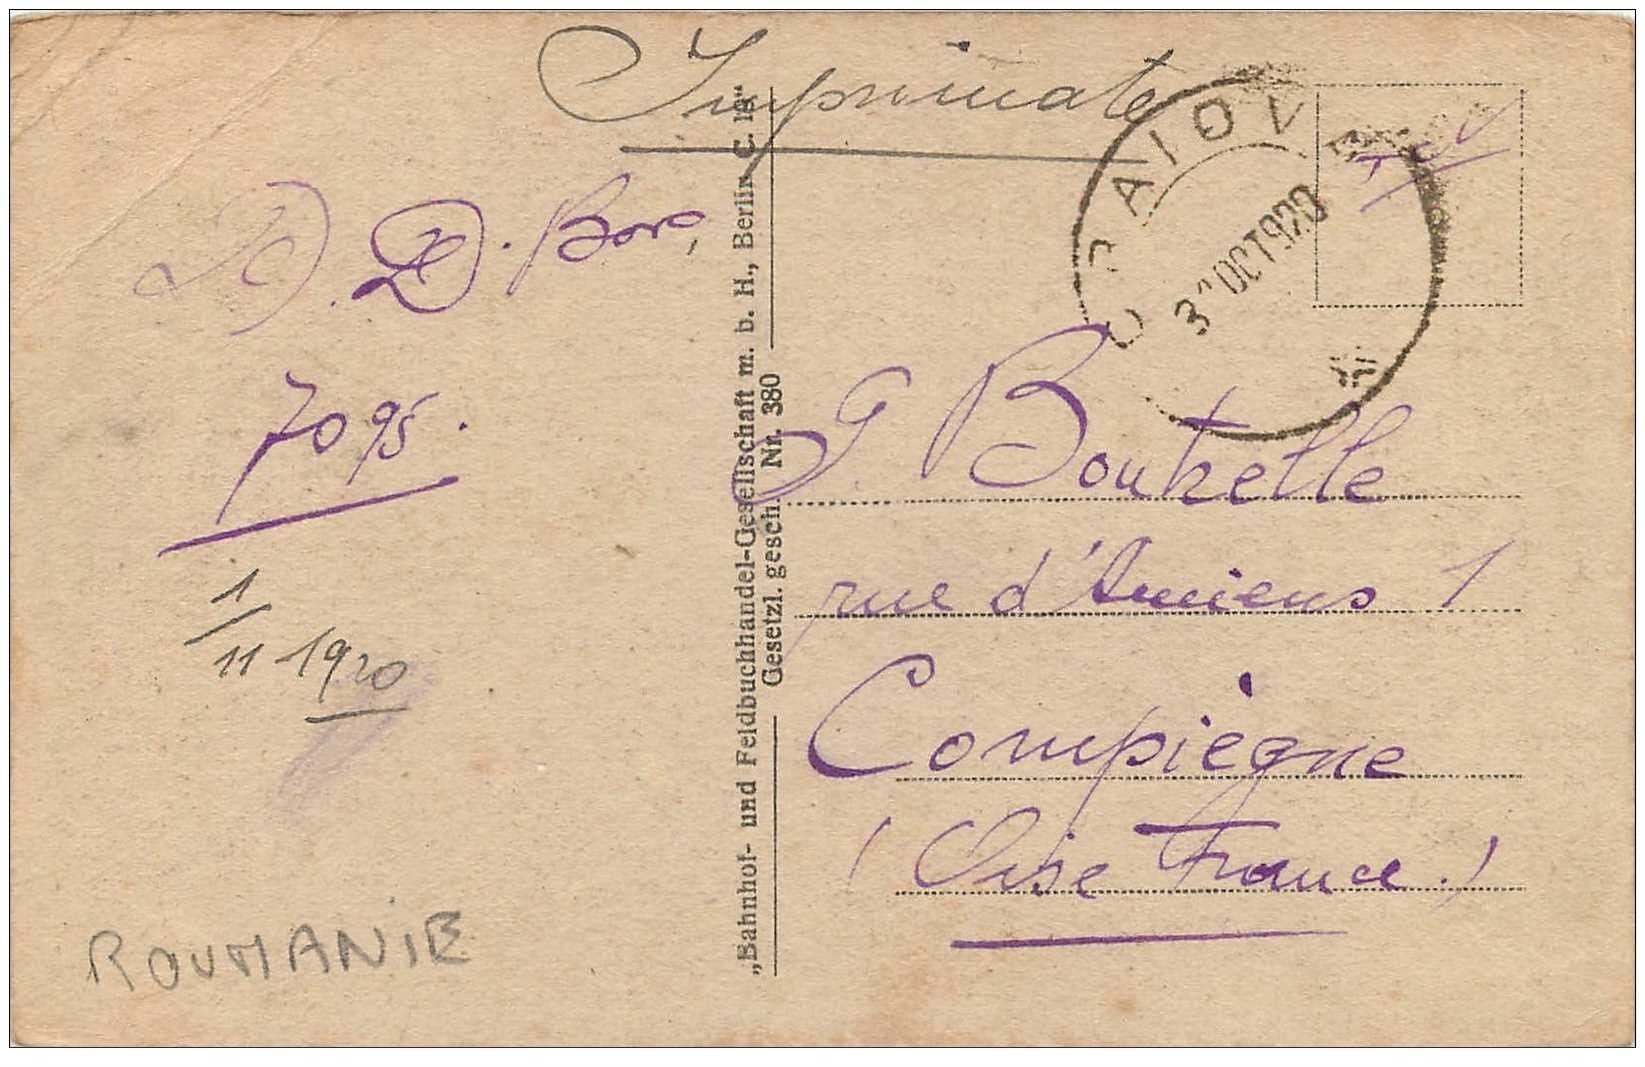 Imprimate
CRAIOVA
3 OCT 920
T.C.V
D. D. Bore,
7095.
1/11 1920
ROUMANIE
„Bahnhof- und Feldbuchhandel-Gesellschaft m. b. H., Berlin C. 19“
Gesetzl. gesch. Nr. 380
G. Boutrelle
rue d'Amiens 1
Compiègne
(Oise France.)